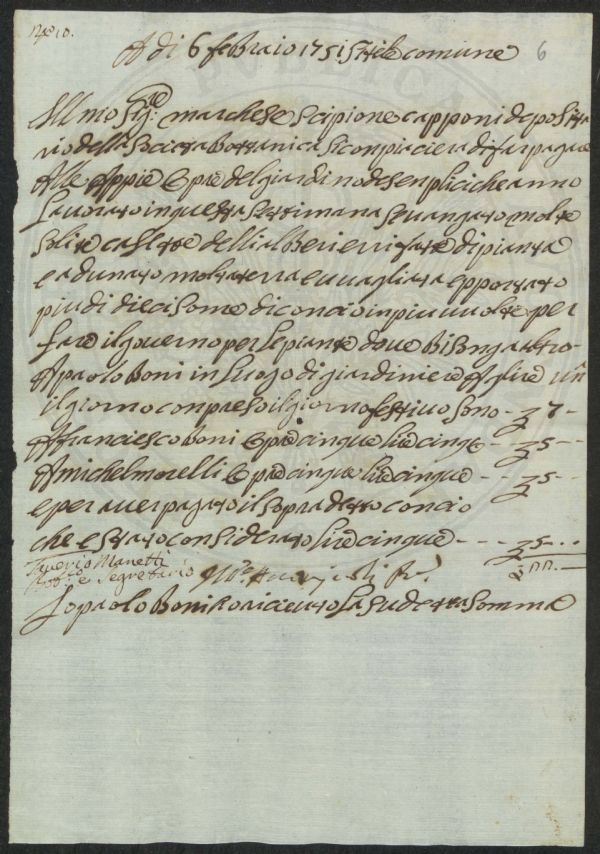 N.º 10.
A di 6 febraio 1751 Stile comune
6
All mio Sig:re marchese Scipione capponi deposita
rio della Sociata Bottanica Si conpiaciera di far pagare
Alle Appie Opre del giardino de senplici che anno
Lavorato in questa Settimana Sevangato molte
Solite caselle delli alberi e rifate di piante
e adunato molta terra e vagliata e pportato
piu di dieci Some di concio in piu volte per
fare il governo per le piante dove bisongia altro
A paolo Boni in Luogo di giardiniere A lire un
il giorno conpreso il giorno festivo Sono - £ 7 -
A franciesco boni Opre cinque lire cinqe - - £ 5 - -
A michel morelli Opre cinque lire cinque - - £ 5 - -
e per aver pagato il Sopra detto concio
che e stato considerato lire cinque - - - - £ 5 . . .
Saverio Manetti £ 22. —
Segretario
Io paolo Boni o riceuto La sudetta Somma
PVBLICA